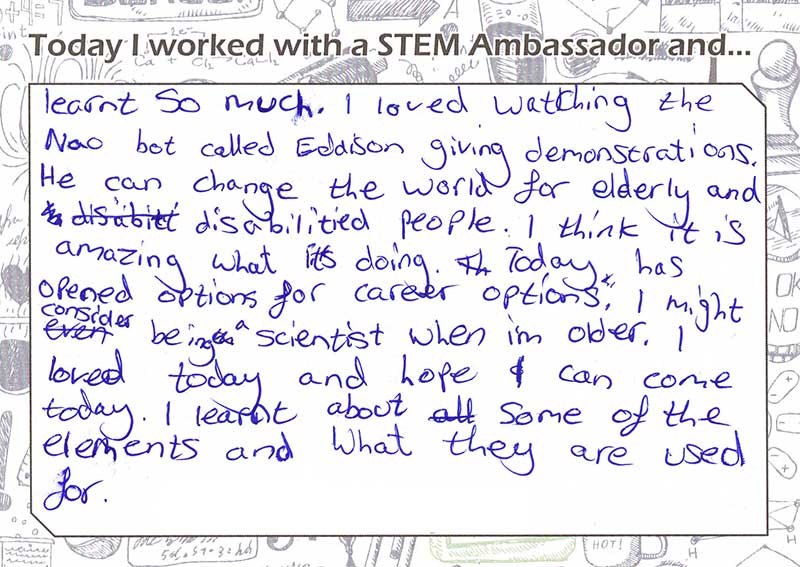 Today I worked with a STEM Ambassador and...
learnt So much. I loved watching the
Nao bot called Eddison giving demonstrations.
He can change the world for elderly and
disabilitied people. I think it is
amazing what its doing. Today has
opened options for career options. I might
consider
being a scientist when im older. I
loved today and hope I can come
today. I learnt about all some of the
elements and what they are used
for.
OK
NO
HOT!